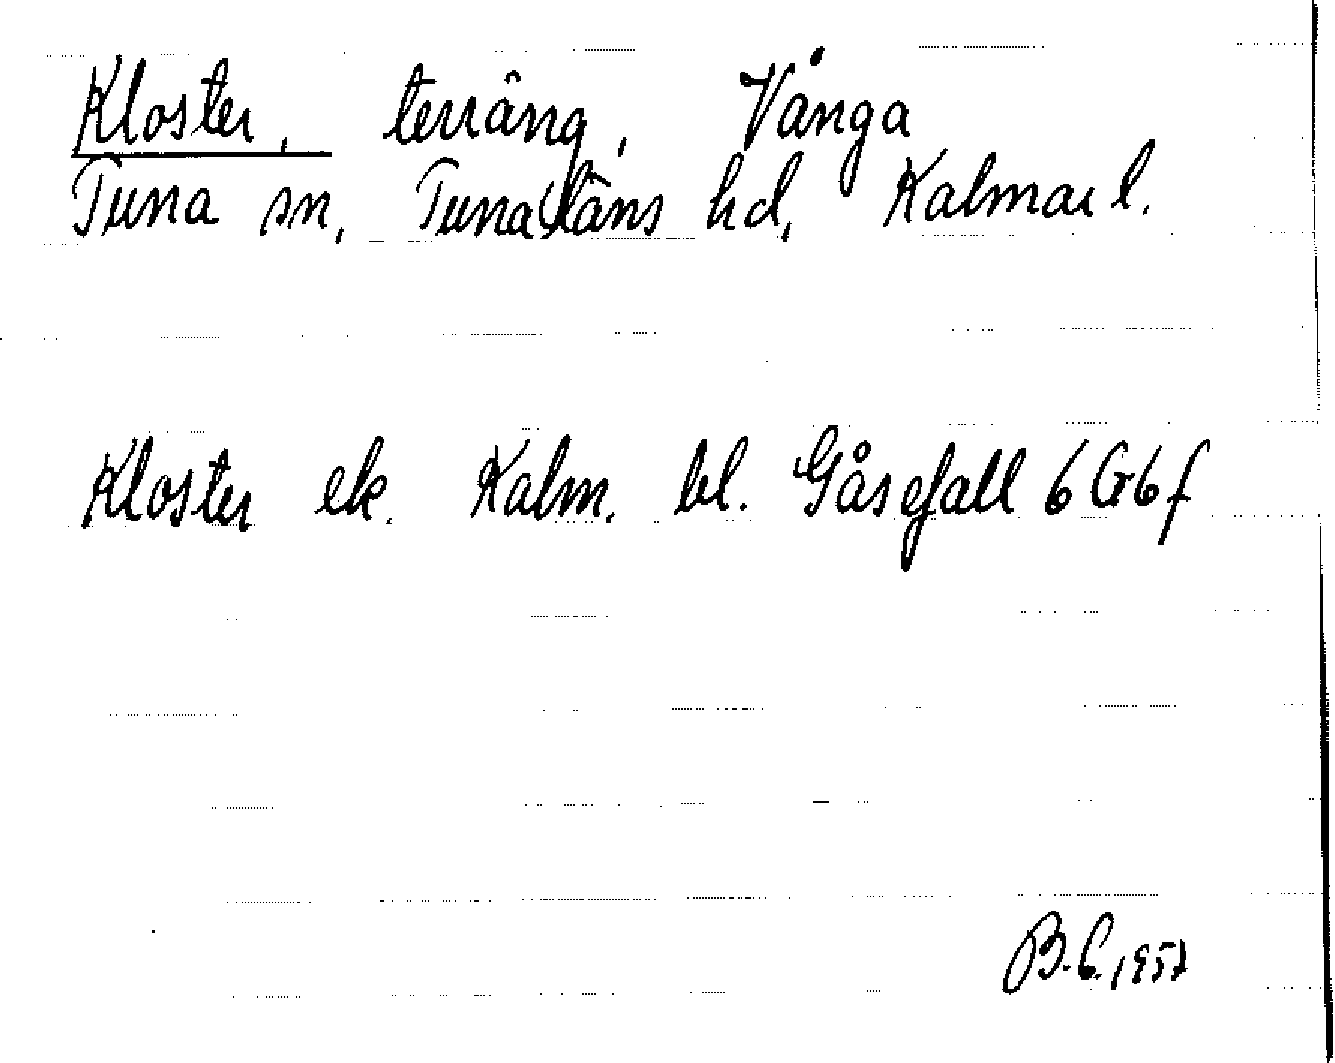 Kloster, terräng, Vånga
Tuna sn, Tunaläns hd, Kalmar l.
Kloster ek. Kalm. bl. Gåsefall 6G6f
B.C. 1957